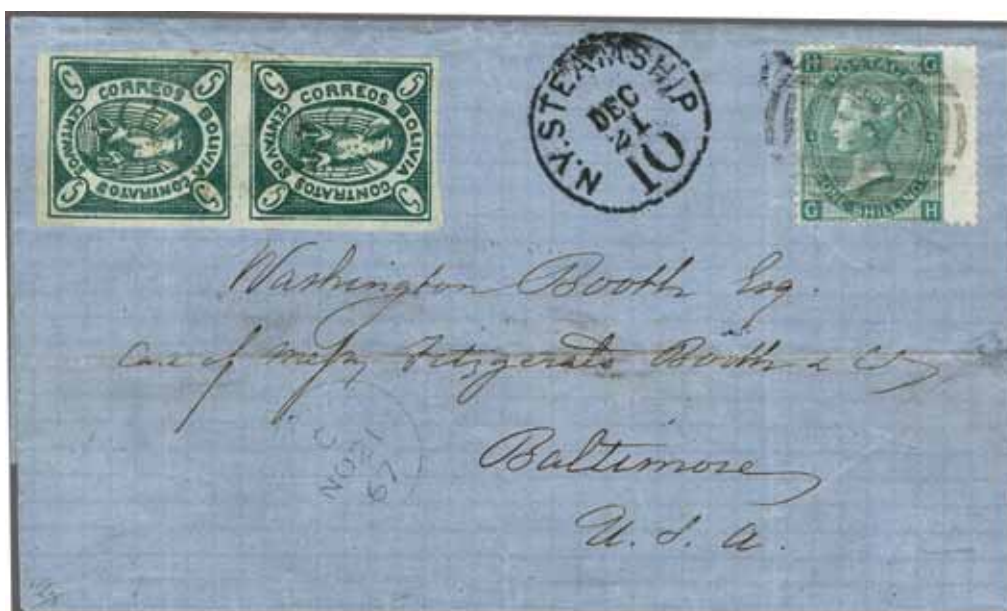 5 CORREOS 5
BOLIVIA
CONTRATOS
5 CENTAVOS 5
5 CORREOS 5
BOLIVIA
CONTRATOS
5 CENTAVOS 5
N.Y. STEAMSHIP
DEC
21
10
H G
G H
Washington Booth Esq.
Care of Messrs Fitzgerald Booth & Co
Baltimore
U. S. A.
C
NO 21
67